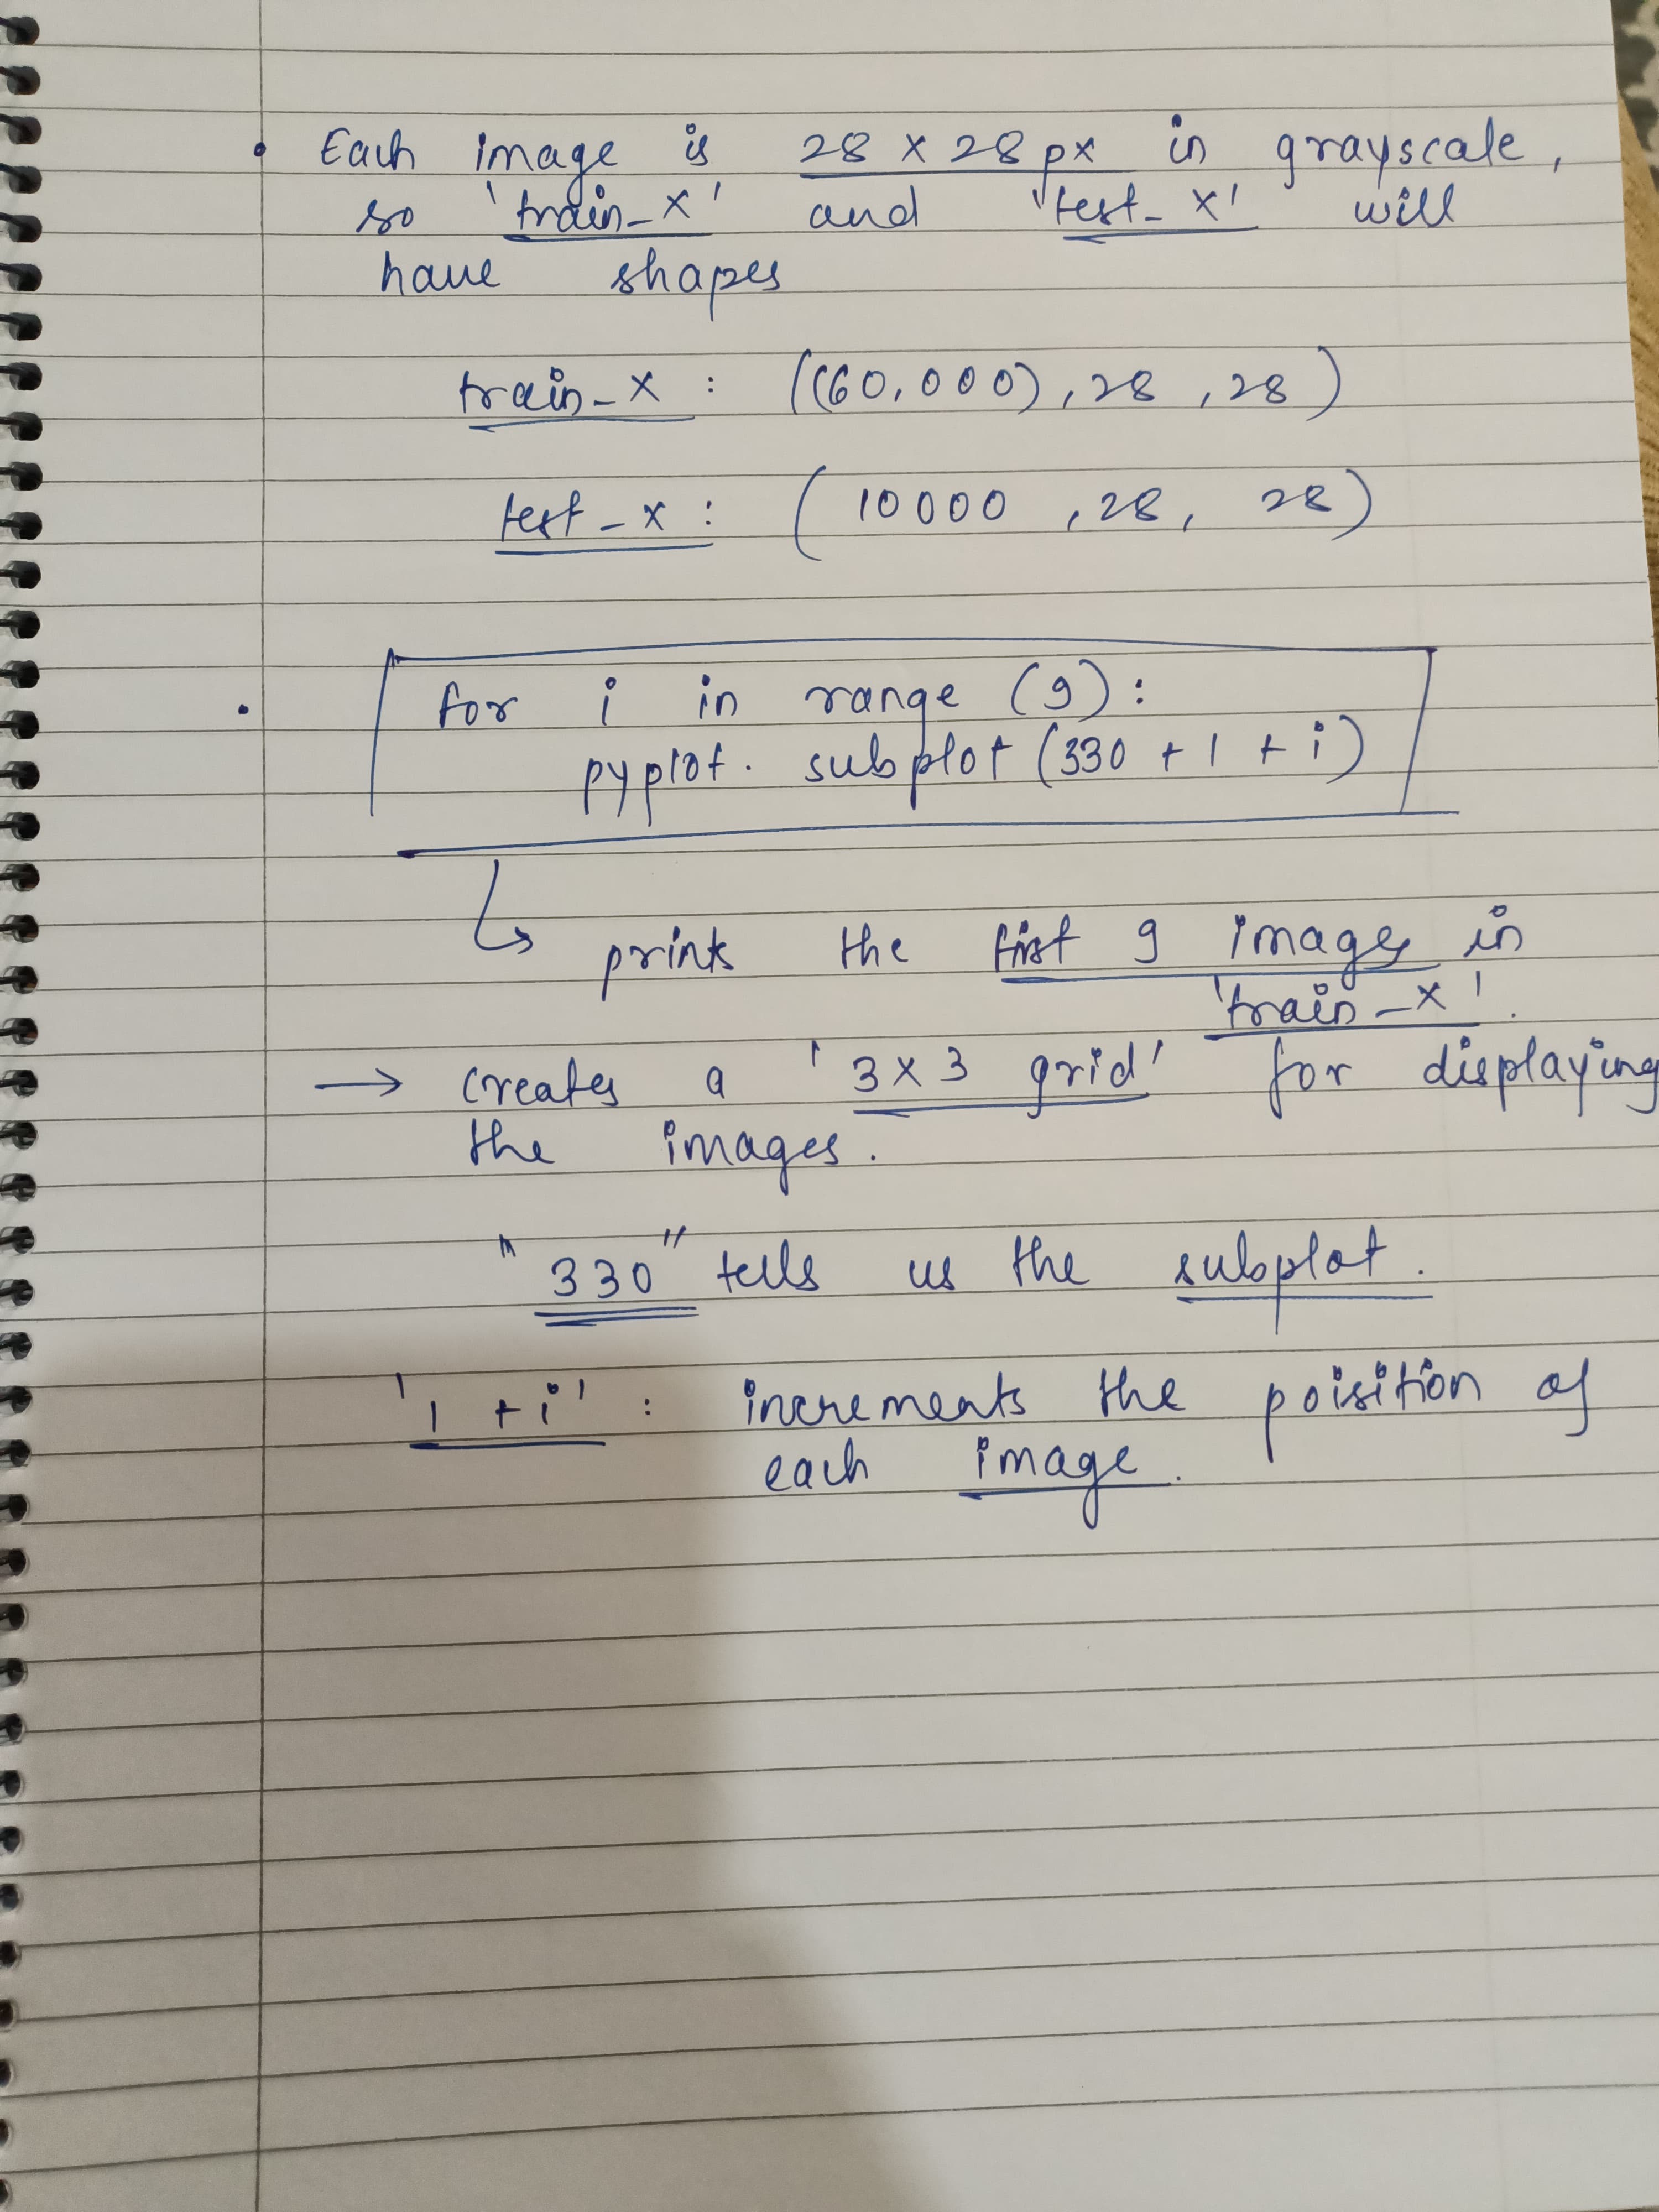 • Each image is 28 x 28 px in grayscale,
so 'train_x' and 'test_x' will
have shapes
train_x : ((60,000), 28, 28)
test_x : (10000, 28, 28)
• for i in range (9):
pyplot. subplot (330 + 1 + i)
↳ prints the first 9 images in
'train_x'.
→ creates a '3x3 grid' for displaying
the images.
"330" tells us the subplot.
'1 + i' : increments the poisition of
each image.